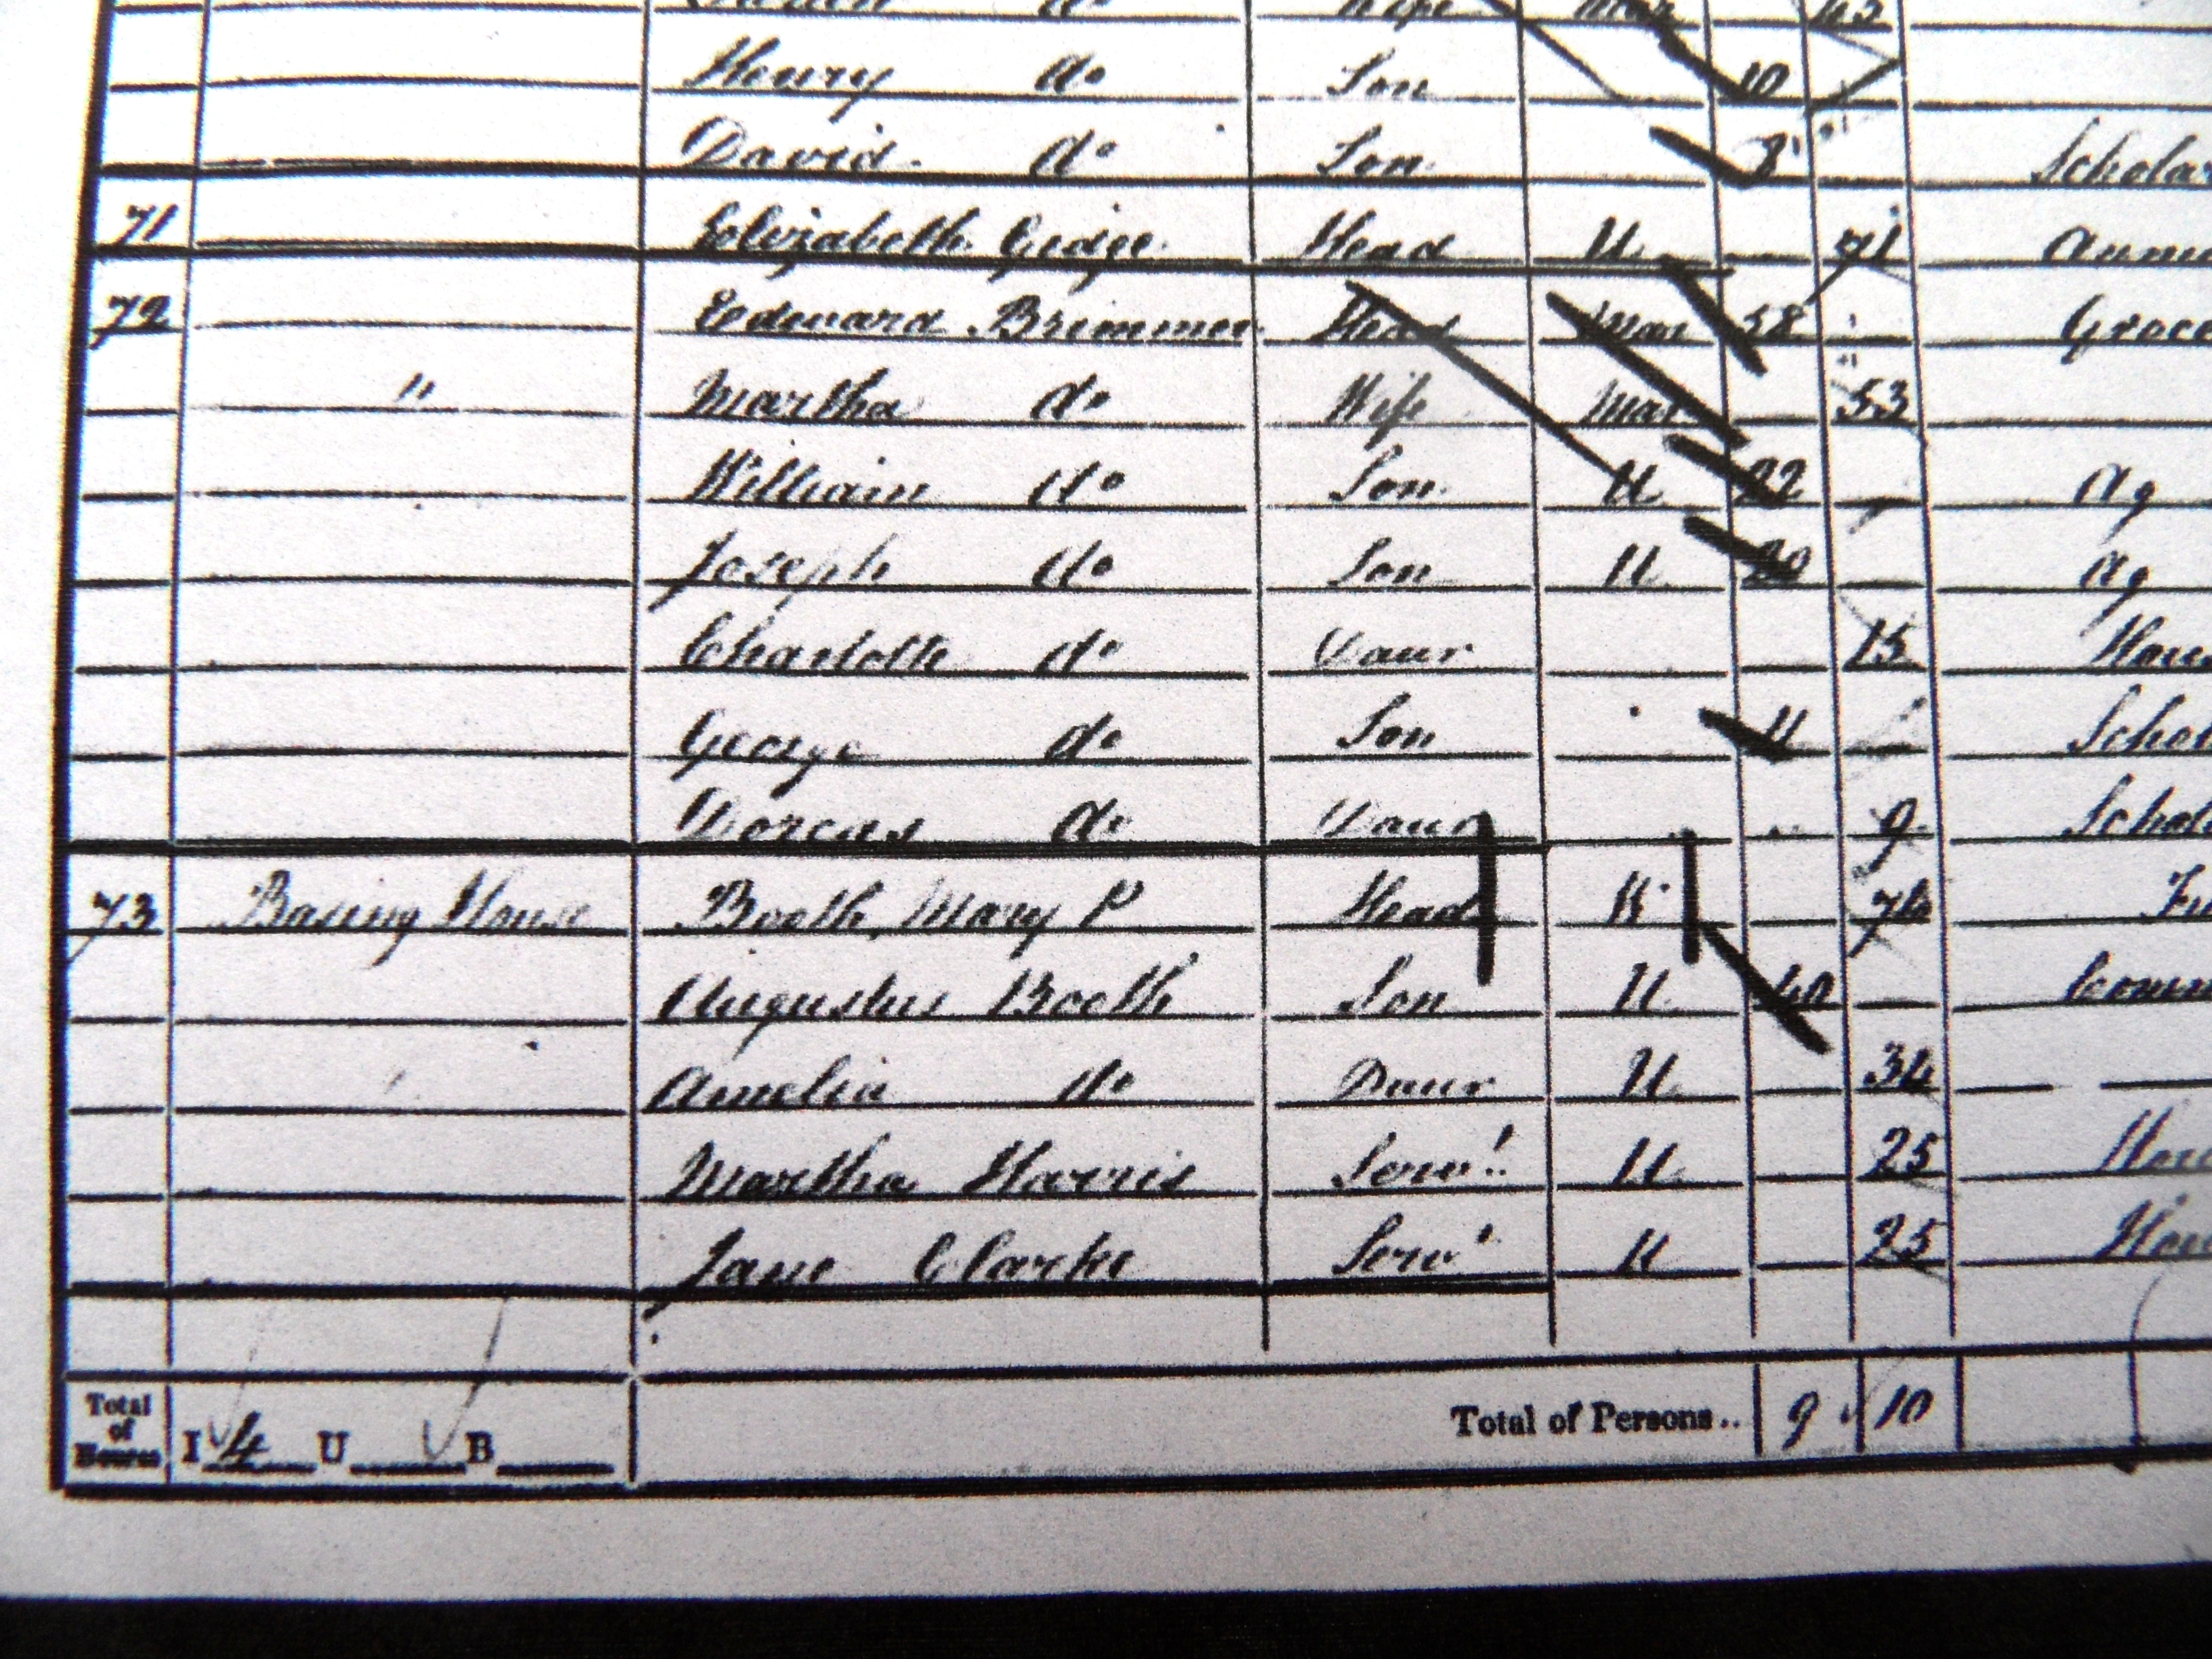 Wife Mar 45
Henry do Son 10
David do Son 8 Scholar
71 Elizabeth Gidge Head U 71 Annu
72 Edward Brimmer Head Mar 58 Groce
" Martha do Wife Mar 53
William do Son U 22 Ag
Joseph do Son U 20 Ag
Charlotte do Daur 15 Hou
George do Son 11 Schol
Dorcas do Daur 9 Schol
73 Basing House Booth, Mary P Head W 76 Fu
Augustus Booth Son U 40 Comm
Amelia do Daur U 34
Martha Harris Servt U 25 Hou
Jane Clarke Servt U 25 Hou
Total of Houses I 4 U B Total of Persons.. 9 10